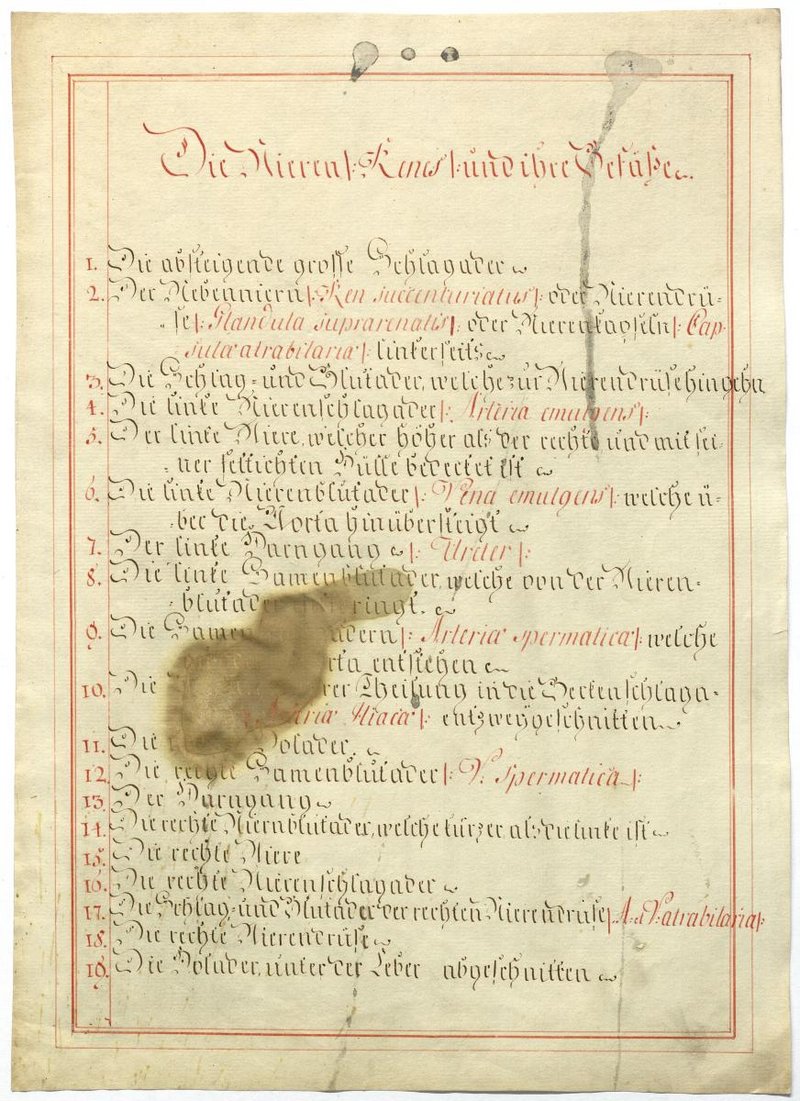 Die Nieren |: Renes :| und ihre Gefäße
1. Die absteigende grosse Schlagader
2. Der Nebenniern |: Ren succenturiatus :| oder Nierendrü-
se |: Glandula suprarenalis :| oder Nierenkapseln |: Cap-
sulæ atrabilariæ :| linkerseits
3. Die Schlag- und Blutader, welche zur Nierendrüse hingehn
4. Die linke Nierenschlagader |: Arteria emulgens :|
5. Der linke Niere, welcher höher als der rechte und mit sei-
ner fettichten Hülle bedecket ist
6. Die linke Nierenblutader |: Vena emulgens :| welche ü-
ber die Aorta hinübersteigt
7. Der linke Harngang |: Ureter :|
8. Die linke Samenblutader, welche von der Nieren-
blutader
9. Die :| Arteriæ spermaticæ :| welche
entstehen
10. Die Theilung in die Beckenschlaga-
Iliacæ :| entzweÿgeschnitten
11. Die Holader
12. Die rechte Samenblutader |: V. spermatica :|
13. Der Harngang
14. Die rechte Niernblutader, welche kürzer als die linke ist
15. Die rechte Niere
16. Die rechte Nierenschlagader
17. Die Schlag- und Blutader der rechten Nierendrüse |: A. & V. atrabilaria :|
18. Die rechte Nierendrüse
19. Die Holader, unter der Leber abgeschnitten